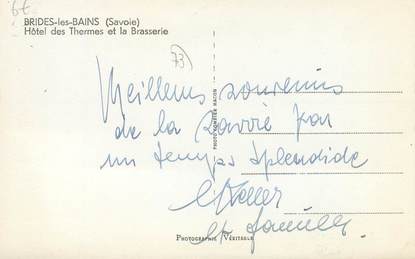 6€
BRIDES-les-BAINS (Savoie)
Hôtel des Thermes et la Brasserie
73
Meilleurs souvenirs
de la Savoie par
un temps splendide
et famille
PHOTO COMBIER MACON
PHOTOGRAPHIE VÉRITABLE